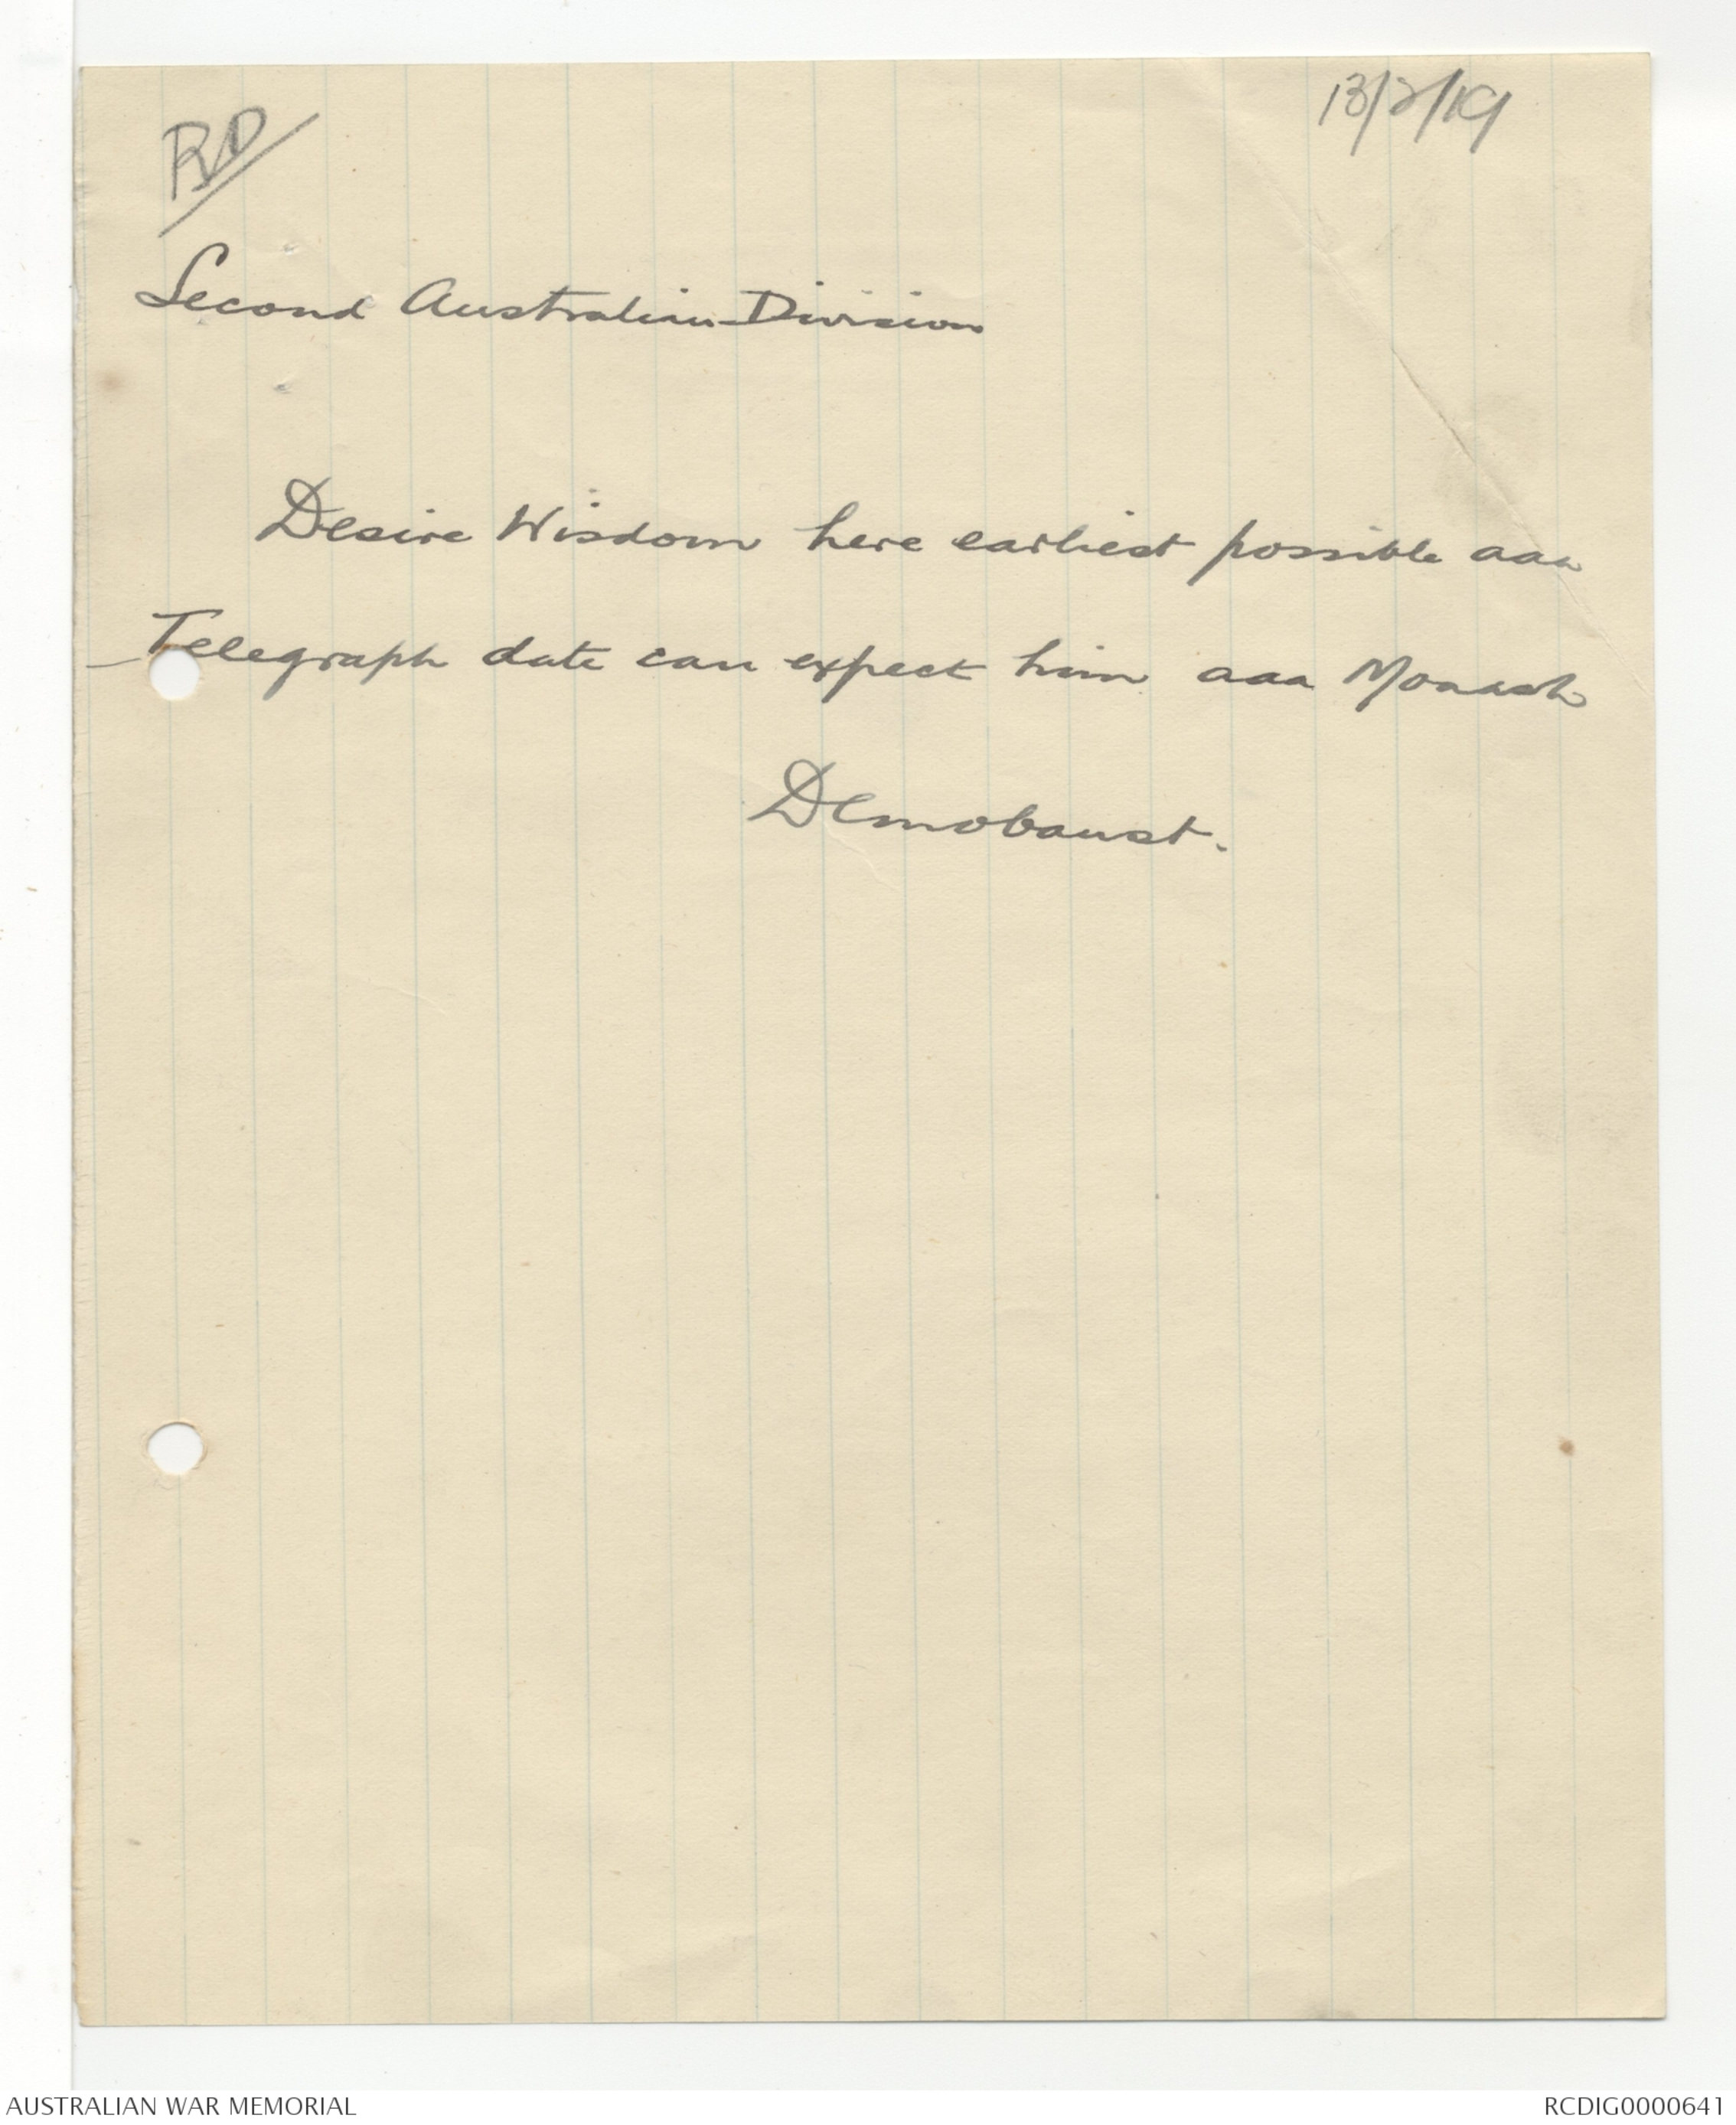 RD
13/2/19
Second Australian Division
Desire Wisdom here earliest possible aaa
Telegraph date can expect him aaa Monash
Demobaust.
AUSTRALIAN WAR MEMORIAL
RCDIG0000641